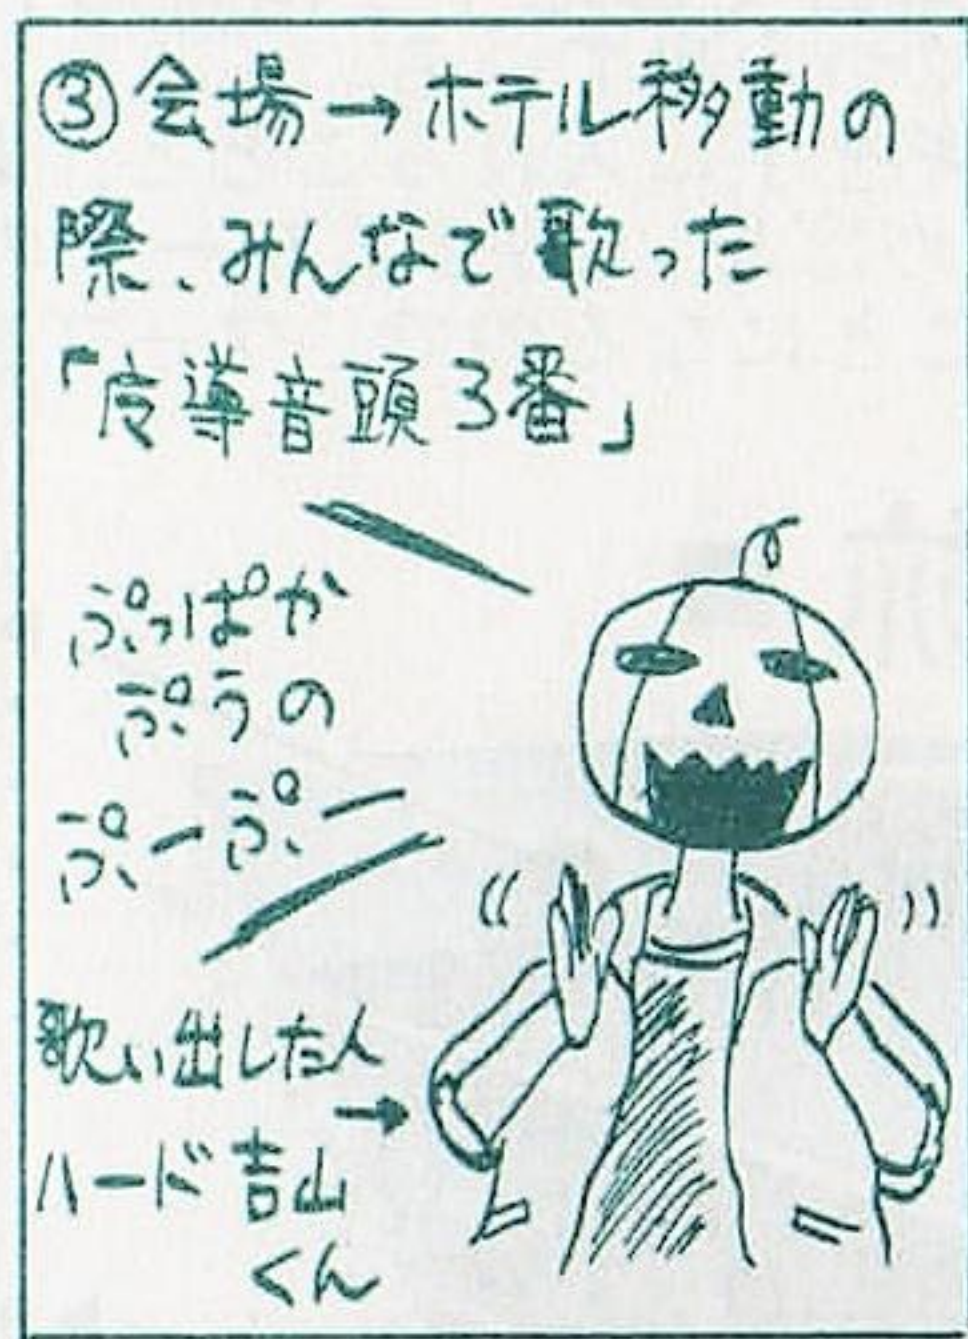 ③会場→ホテル移動の
際、みんなで歌った
「皮導音頭3番」
ぷっぱか
ぷうの
ぷーぷー
歌い出した人
→
ハード吉山
くん